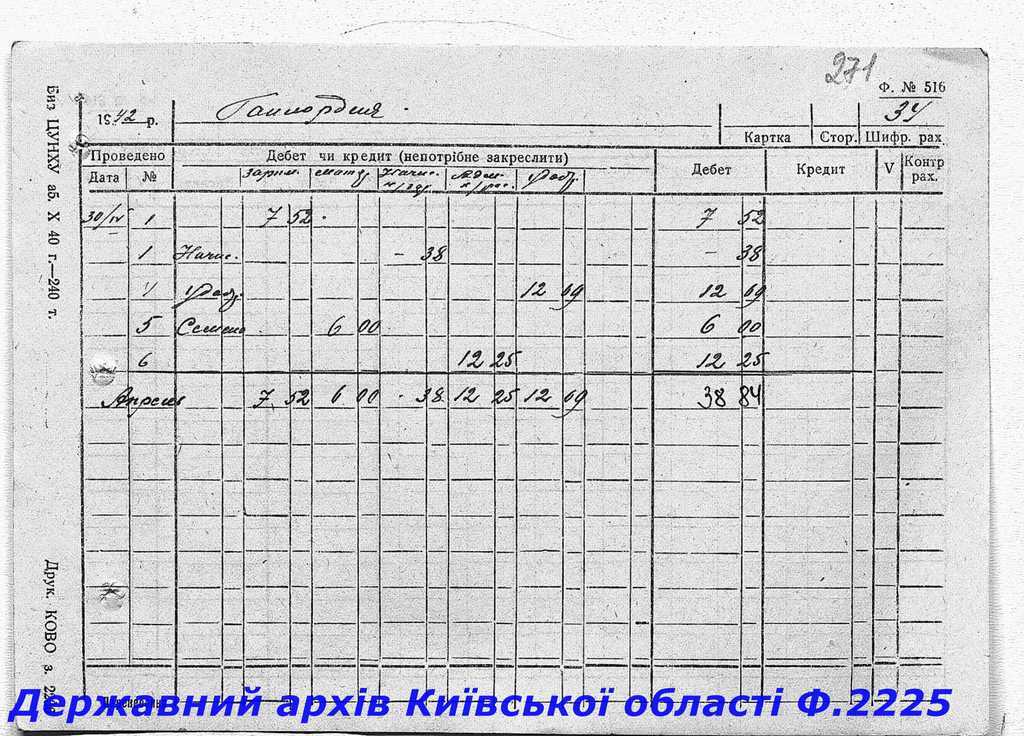 271
Ф. № 516
1942 р.
Гаилордия
34
Картка Стор. Шифр. рах.
Проведено Дебет чи кредит (непотрібне закреслити) Дебет Кредит V Контр рах.
Дата №
30/IV 1 7 52 7 52
1 Начис. - 38 - 38
12 09 12 09
5 Семена 6 00 6 00
6 12 25 12 25
Апрель 7 52 6 00 - 38 12 25 12 09 38 84
Биз ЦУНХУ аб. X 40 г.—240 т.
Друк. КОВО з.
Державний архів Київської області Ф.2225